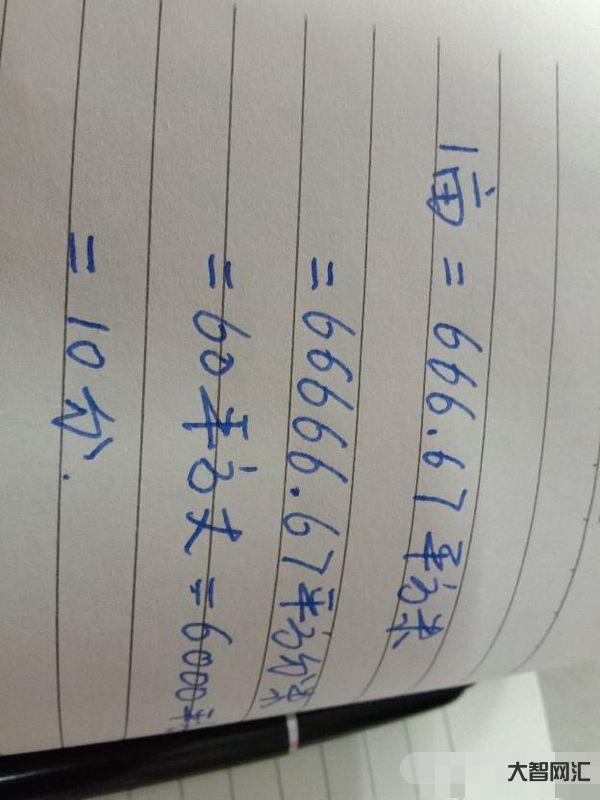 1亩 = 666.67平方米
= 66666.67平方分米
= 60平方丈 = 6000平方
= 10分.
大智网汇